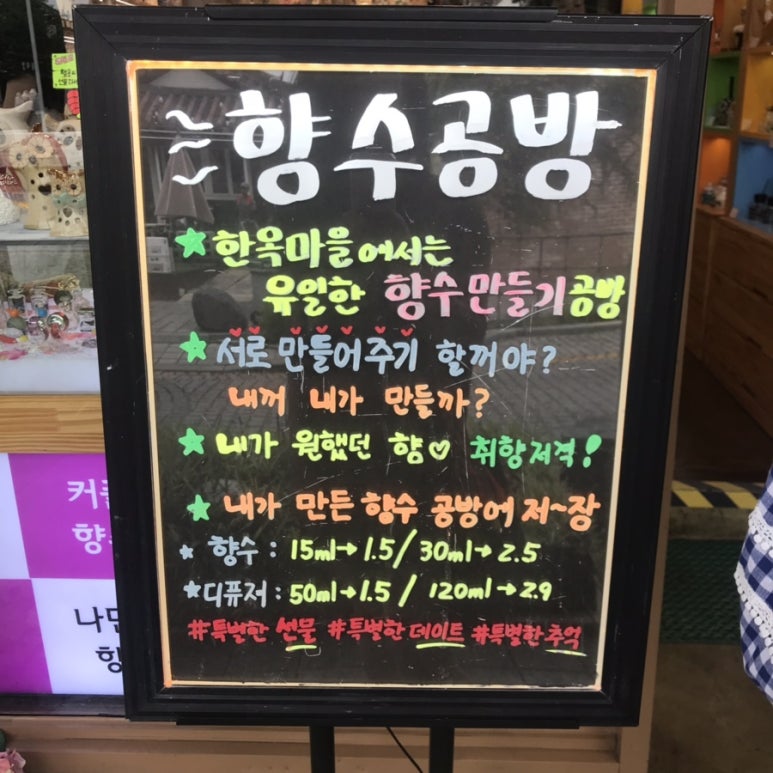 향수공방
★ 한옥마을에서는
유일한 향수만들기공방
★ 서로만들어주기 할꺼야?
내꺼 내가 만들까?
★ 내가 원했던 향♡ 취향저격!
★ 내가 만든향수 공방에 저~장
★ 향수: 15ml→1.5/30ml→2.5
★디퓨저: 50ml→1.5/120ml→2.9
#특별한 선물 #특별한 데이트 #특별한 추억